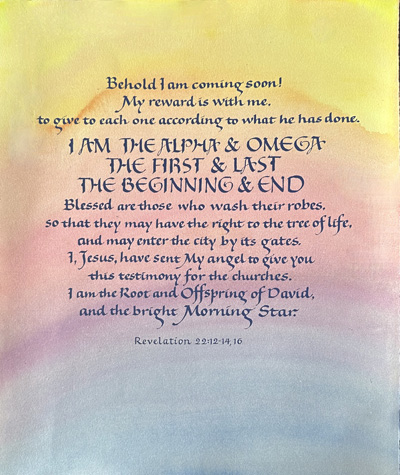 Behold I am coming soon!
My reward is with me,
to give to each one according to what he has done.
I AM THE ALPHA & OMEGA
THE FIRST & LAST
THE BEGINNING & END
Blessed are those who wash their robes,
so that they may have the right to the tree of life,
and may enter the city by its gates.
I, Jesus, have sent My angel to give you
this testimony for the churches.
I am the Root and Offspring of David,
and the bright Morning Star.
Revelation 22:12-14, 16